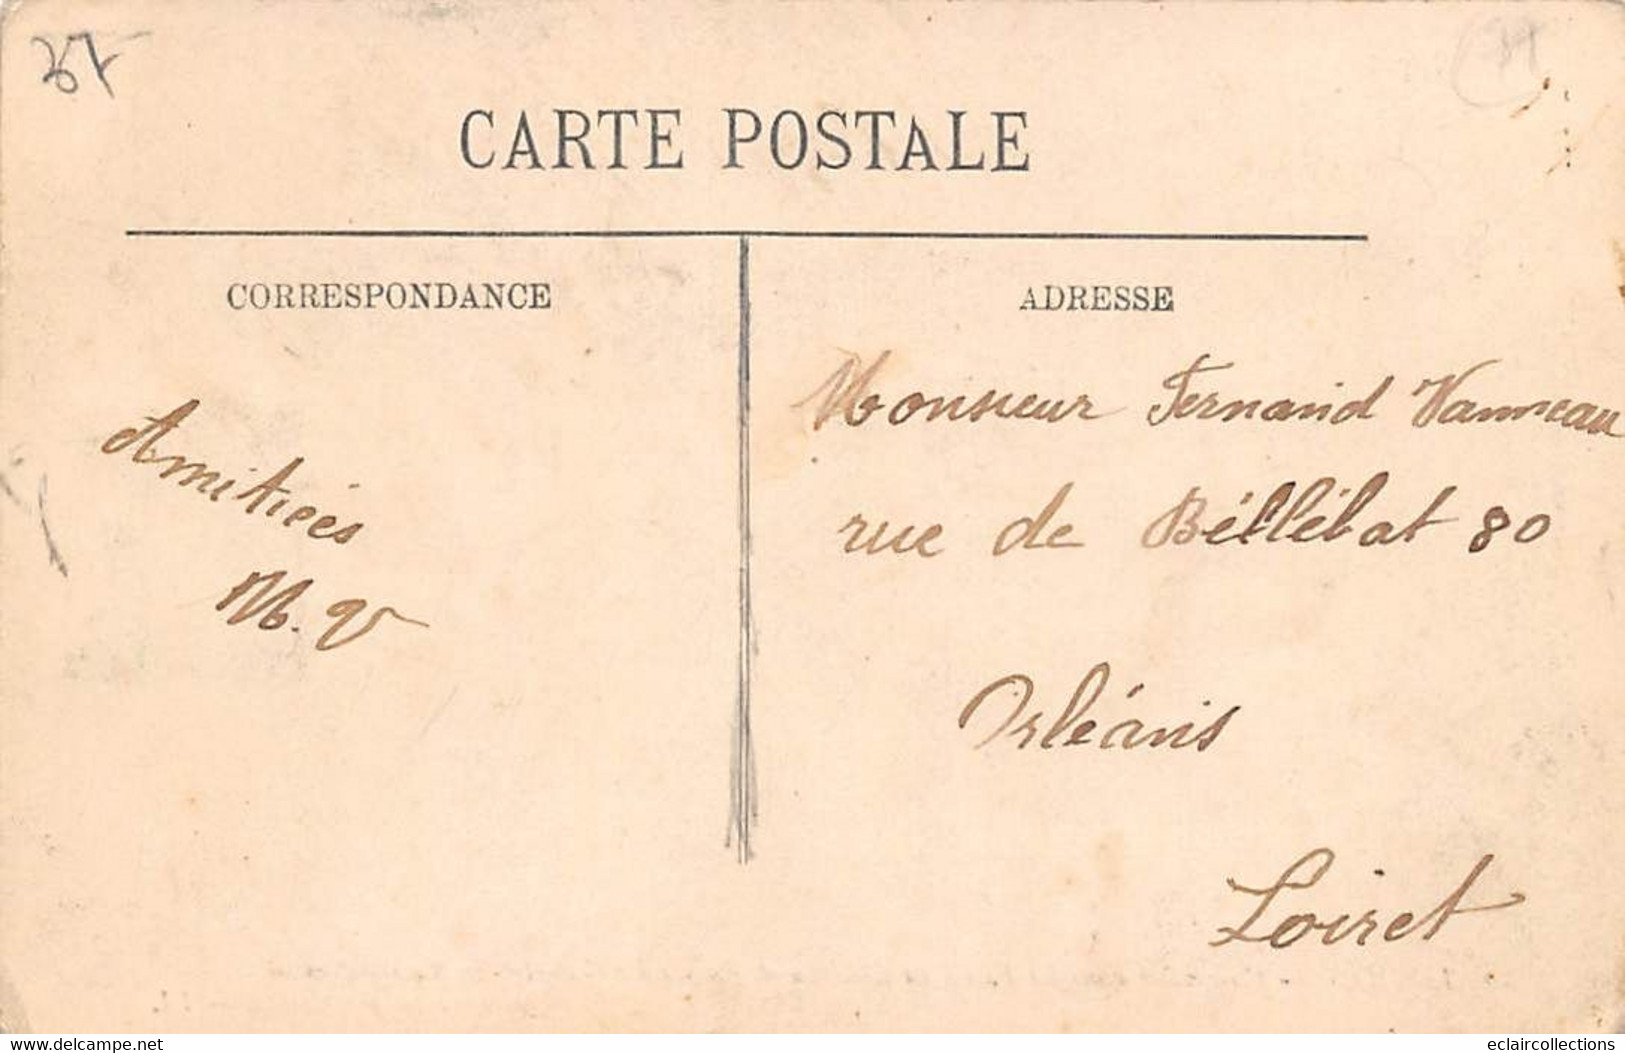 37
CARTE POSTALE
CORRESPONDANCE
ADRESSE
Amitiées
M. V
Monsieur Fernand Vanneau
rue de Béllébat 80
Orléans
Loiret
eclaircollections
www.delcampe.net